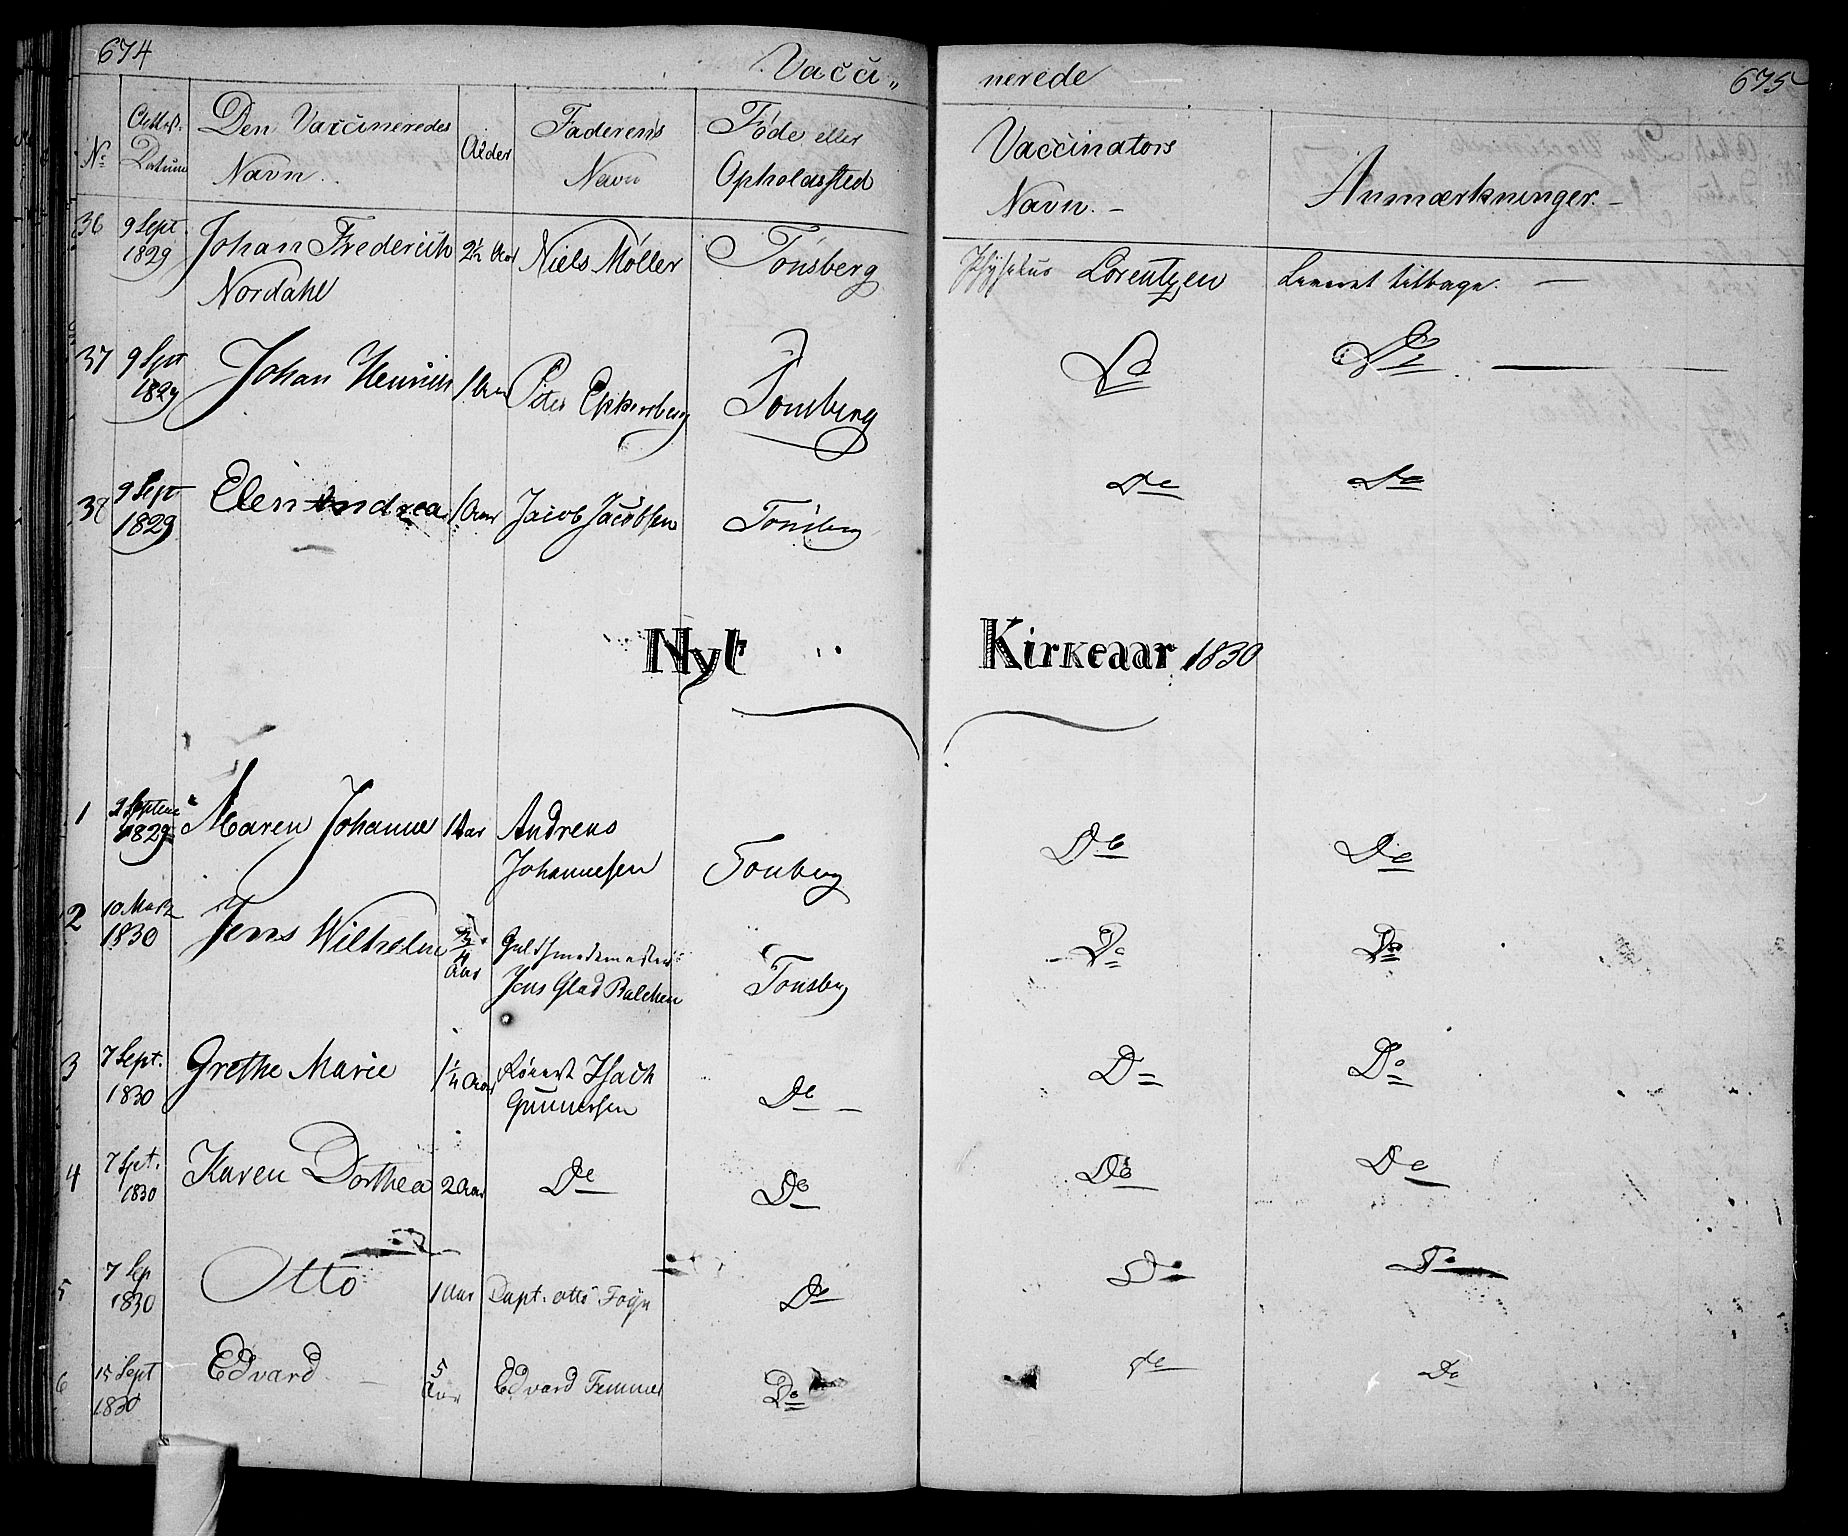 674
Vacci„
nerede
675
No
Attest. Datum
Den Vaccineredes Navn.
Alder
Faderens Navn
Føde eller Opholdssted
Vaccinators Navn. –
Anmærkninger. –
36 9 Sept. 1829 Johan Frederich Nordahl 2½ Aar Niels Møller Tønsberg Physikus Lorentzen Leveret tilbage. —
37 9 Sept 1829 Johan Henrich 1 Aar Peter Tønsberg Do Do —
38 9 Sept 1829 Elen Andrea 1 Aar Jacob Jacobsen Tønsberg Do Do
Nyt Kirkeaar 1830
1 9 Septem 1829 Maren Johanne 1 Aar Andreas Johannesen Tønsberg Do Do
2 10 Marz 1830 Jens Wilhelm ¾ Aar Guldsmedmester Jens Glad Balchen Tønsberg Do Do
3 7 Sept. 1830 Grethe Marie Aar Isach Gunnersen Do – Do Do
4 7 Spt. 1830 Karen Dorthea 2 Aar Do Do Do Do
5 7 Sep 1830 Otto 1 Aar Capt. Otto Foyn Do Do Do
6 15 Sept 1830 Edvard 5 Aar Edvard Do Do Do